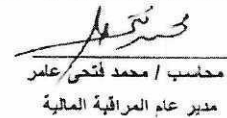 محاسب / محمد فتحى عامر
مدير عام المراقبة المالية